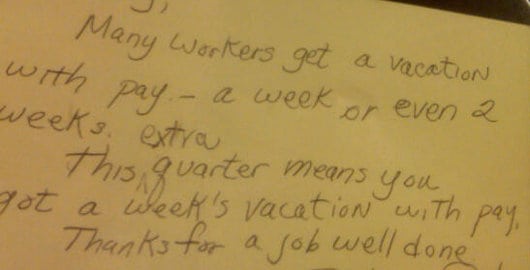 Many workers get a vacation
with pay. – a week or even 2
weeks.
This extra quarter means you
got a week's vacation with pay.
Thanks for a job well done